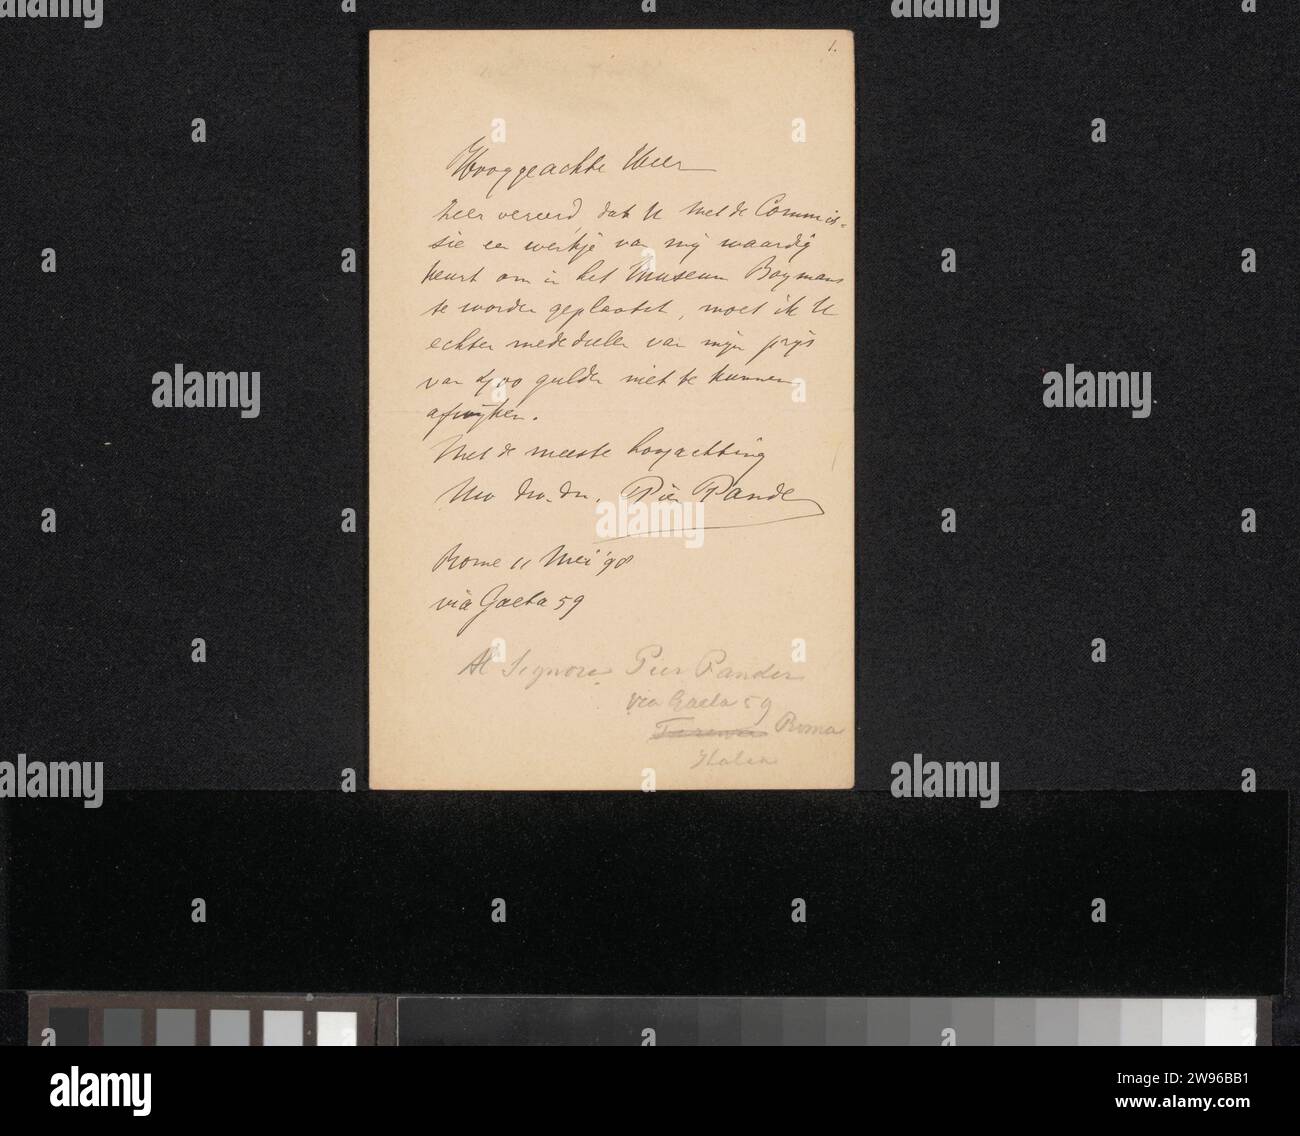 1.
Hooggeachte Heer
zeer vereerd, dat U met de Commis-
sie een werkje van mij waardig
keurt om in het Museum Boymans
te worden geplaatst, moet ik U
echter mededeelen van mijn prijs
van 400 gulden niet te kunnen
afwijken.
Met de meeste hoogachting
Uw dw. dn. Pier Pander
Rome 11 Mei '98
via Gaeta 59
Al Signore Pier Pander
via Gaeta 59
Roma
Italia
a alamy
alamy
Image ID: 2W96BB1
www.alamy.com